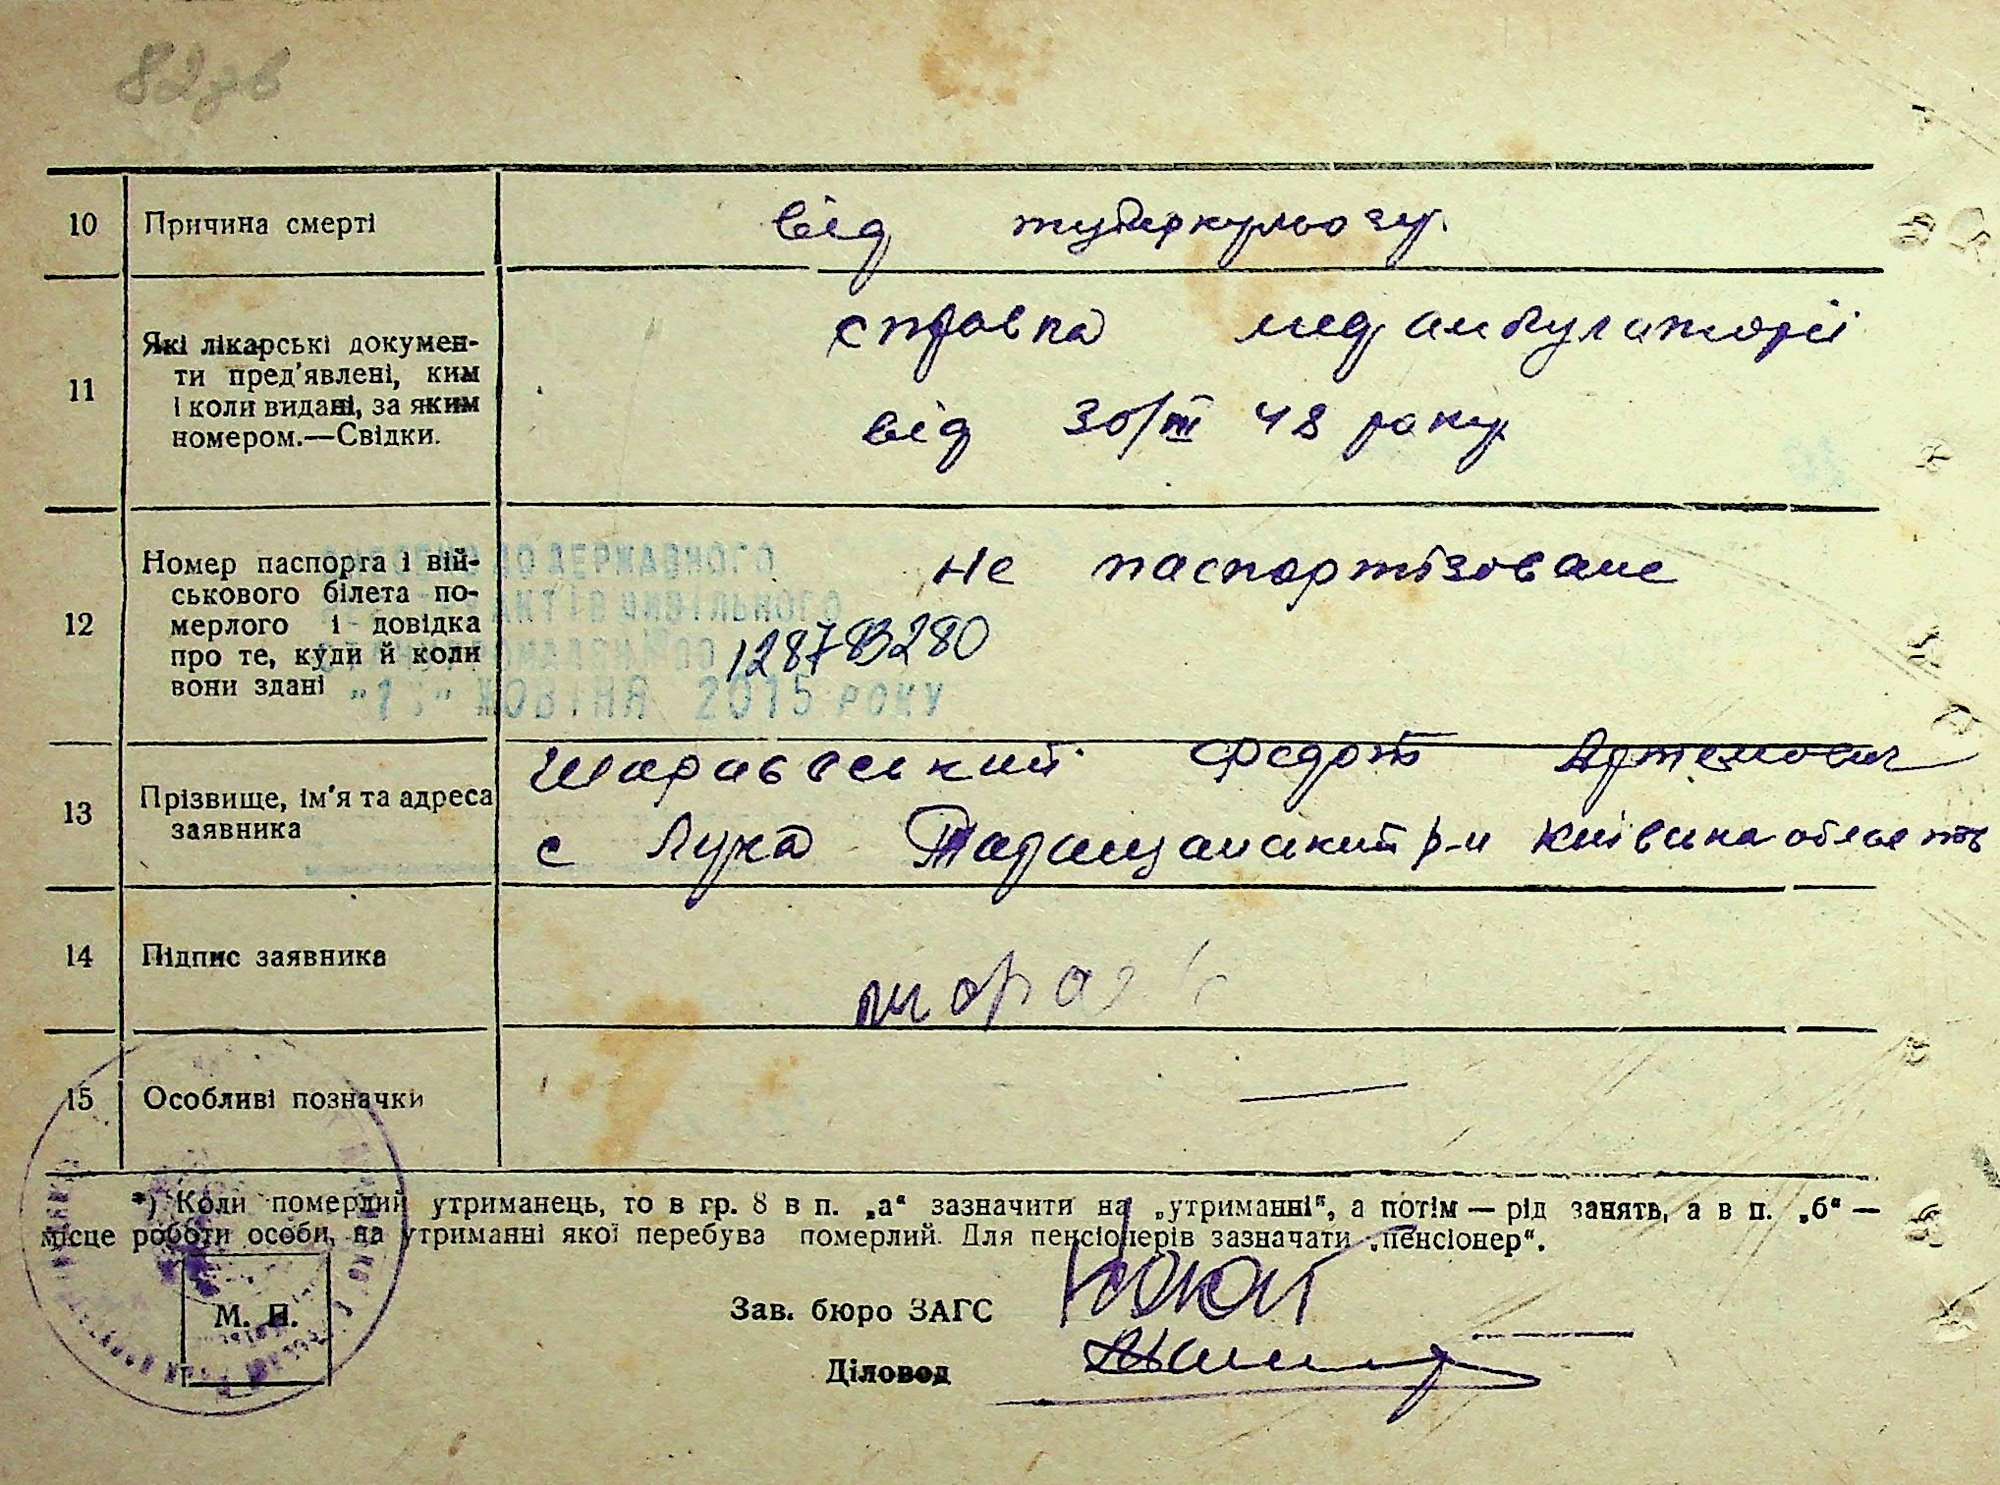 82зв
10 Причина смерті від туберкульозу.
11 Які лікарські докумен-
ти пред'явлені, ким
і коли видані, за яким
номером.—Свідки.
справка медамбулаторіі
від 30/III 48 року
12 Номер паспорта і вій-
ськового білета по-
мерлого і довідка
про те, куди й коли
вони здані
не паспортізоване
ДО ДЕРЖАВНОГО
АКТІВ ЦИВІЛЬНОГО
ГРОМАДЯНИНО
ЖОВТНЯ 2015 РОКУ
13 Прізвище, ім'я та адреса
заявника
Шараєвський Федот Артемович
с Лука Таращанський р-н Київська область
14 Підпис заявника
15 Особливі позначки —
*) Коли померлий утриманець, то в гр. 8 в п. „а“ зазначити на „утриманні“, а потім — рід занять, а в п. „б“ —
місце роботи особи, на утриманні якої перебува померлий. Для пенсіонерів зазначати „пенсіонер“.
М. П.
Зав. бюро ЗАГС
Діловод